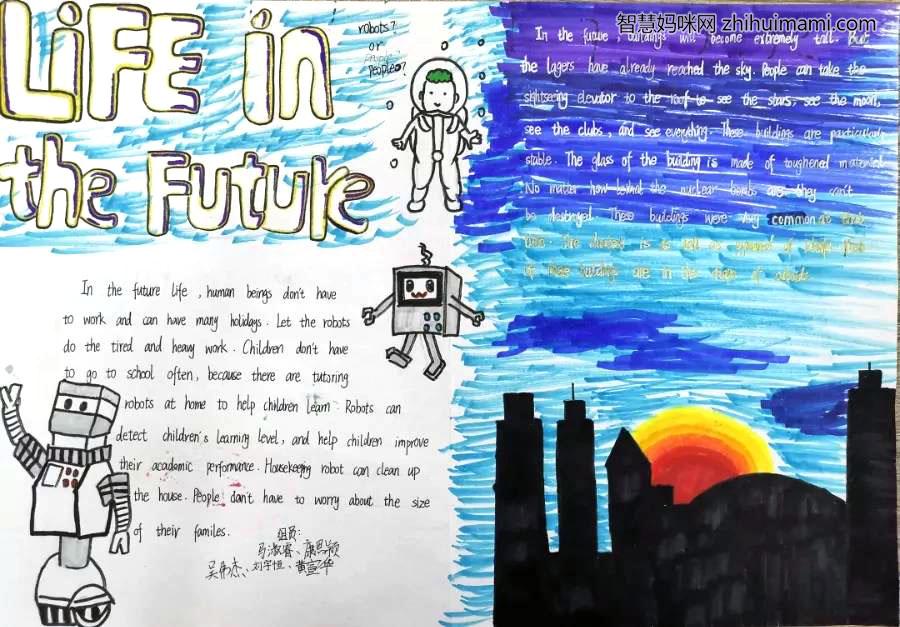 LiFE in
the Future
robots?
or
people?
智慧妈咪网 zhihuimami.com
In the future, buildings will become extremely tall. But
the lagers have already reached the sky. People can take the
sightseeing elevator to the roof to see the stars, see the moon,
see the clubs, and see everything. These buildings are particularly
stable. The glass of the building is made of toughened material.
No matter how the nuclear bombs are they can't
be destroyed. These buildings were very common at that
are in the of
In the future life, human beings don't have
to work and can have many holidays. Let the robots
do the tired and heavy work. Children don't have
to go to school often, because there are tutoring
robots at home to help children learn. Robots can
detect children's learning level, and help children improve
their academic performance. Housekeeping robot can clean up
the house. People don't have to worry about the size
of their familes.
组员:
马淑睿、康思颖
吴伟杰、刘宇恒、黄宣华